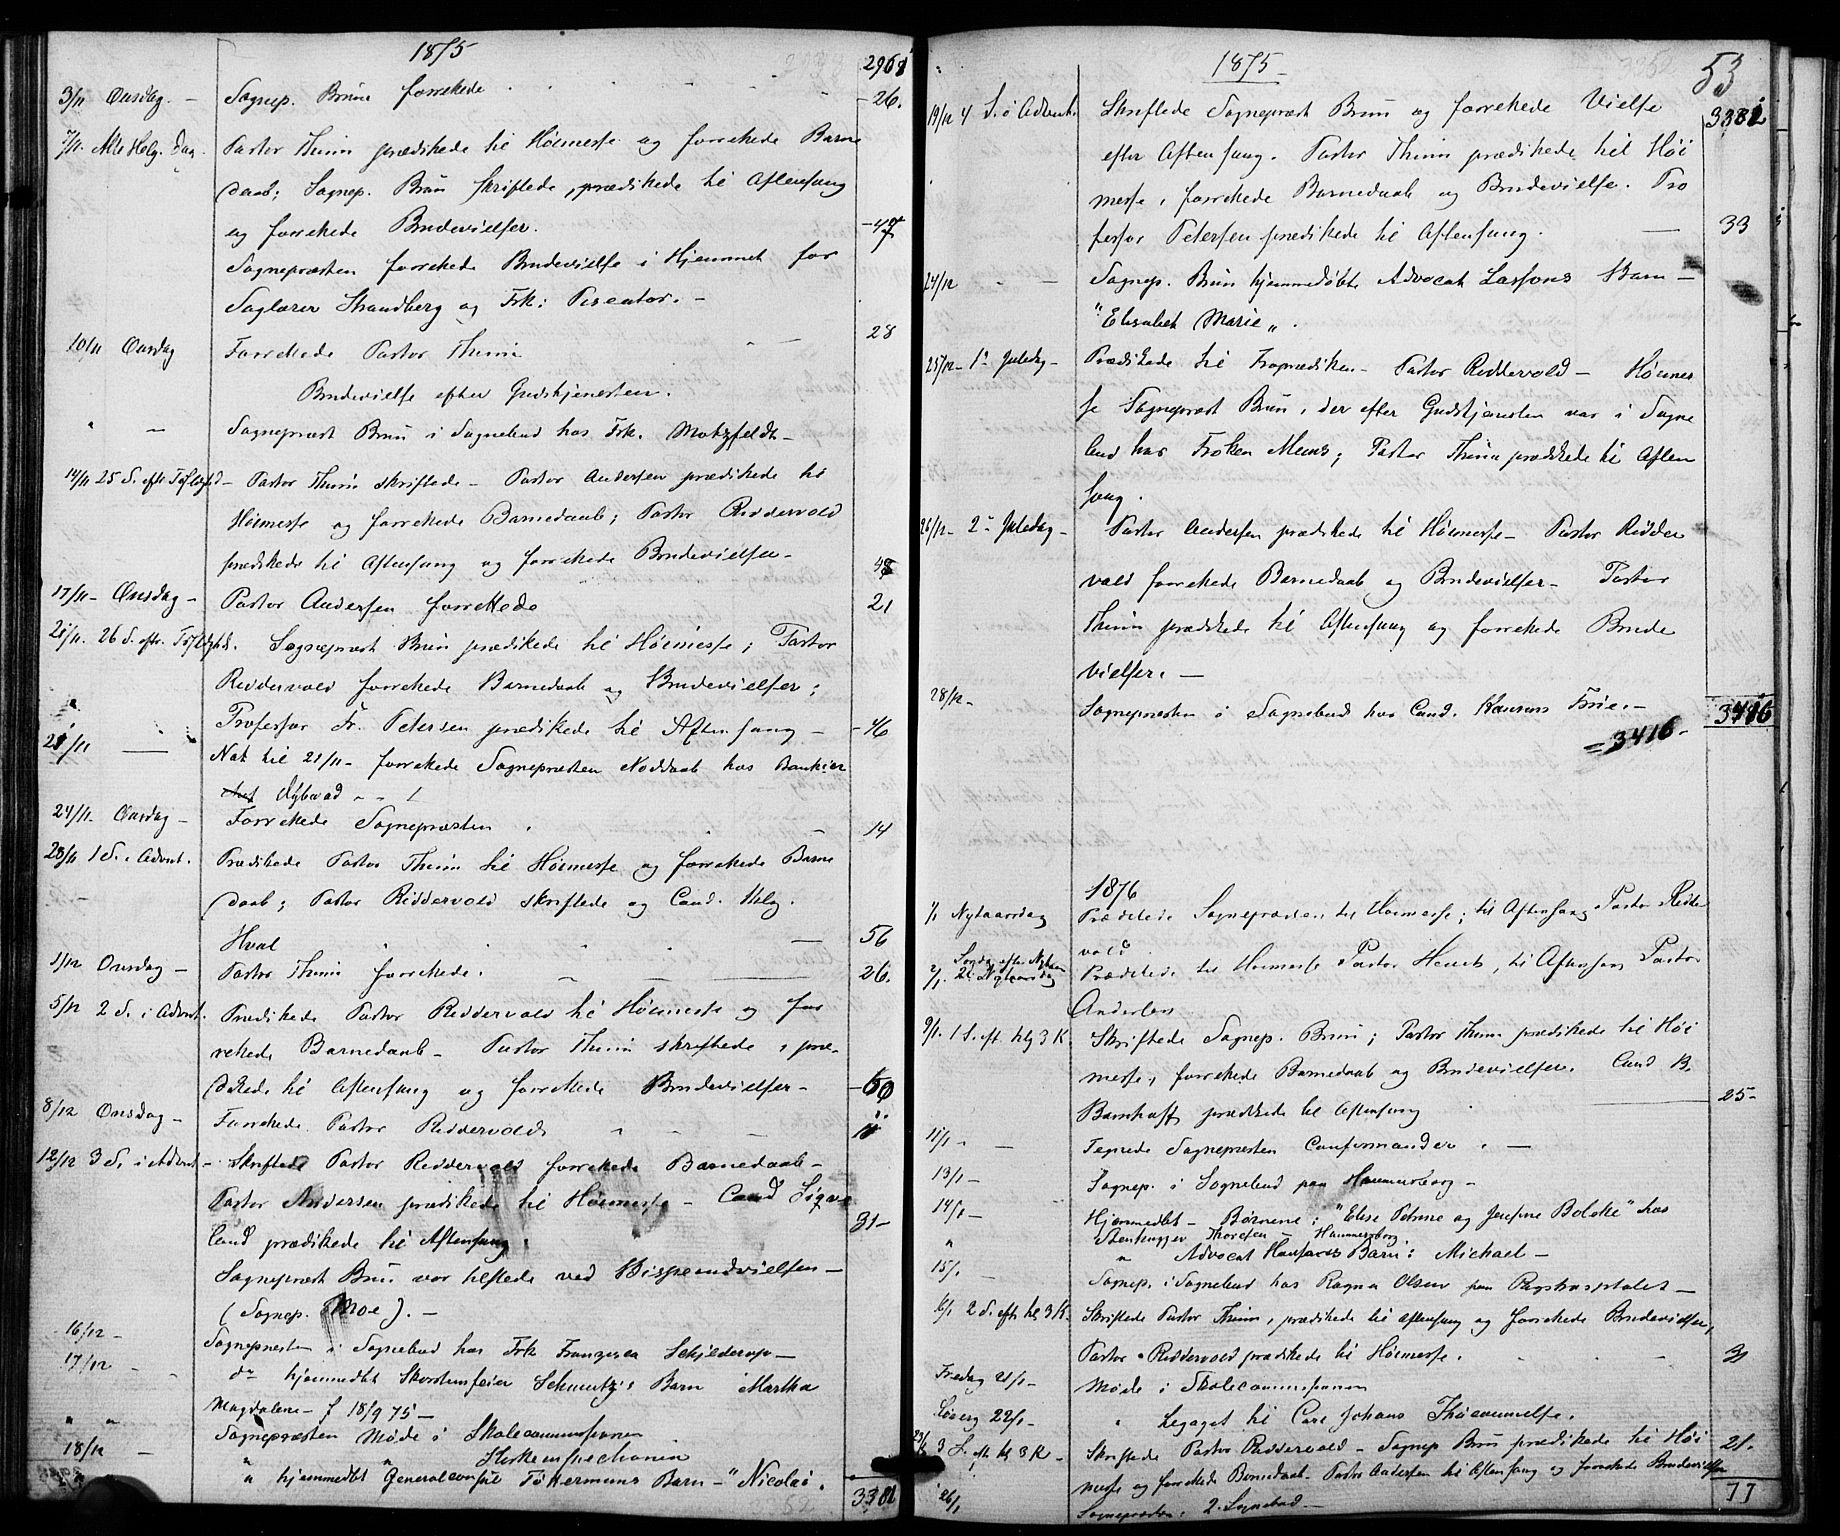 1875
2961
3/11 Onsdag. - Sognep. Brun forrettede - 26.
7/11. Alle Helg. Dag. Pastor Thinn prædikede til Höimesse og forrettede Barne
daab; Sognep. Brun skriftede, prædikede til Aftensang
og forrettede Brudevielser. - 47
Sognepræsten forrettede Brudevielse i Hjemmet for
Faglærer Strandberg og Frk: Piscator. -
10/11 Onsdag Forrettede Pastor Thinn 28
Brudevielse efter Gudstjenesten.
" - Sognepræst Brun i Sognebud hos Frk. Motzfeldt -
14/11 25 S. eft. - Pastor Thinn skriftede - Pastor Andersen prædikede til
Höimesse og forrettede Barnedaab; Pastor Riddervold
prædikede til Aftensang og forrettede Brudevielser - 48
17/11 - Onsdag - Pastor Andersen forrettede 21
21/11. 26 S. eftr. Sognepræst Brun prædikede til Höimesse; Pastor
Riddervold forrettede Barnedaab og Brudevielser;
Professor Fr. Petersen prædikede til Aftensang - - 46
21/11 - Nat til 21/11 - forrettede Sognepræsten Nöddaab hos Bankier
Dybwad - -
24/11. Onsdag - Forrettede Sognepræsten. - 14
28/11 1 S. i Advent. Prædikede Pastor Thinn til Höimesse og forrettede Barne
daab; Pastor Riddervold skriftede og Cand. Helg.
Hval - 56
1/12 Onsdag - Pastor Thinn forrettede. 26.
5/12 2 S. i Advent. Prædikede Pastor Riddervold til Höimesse og for
rettede Barnedaab - Pastor Thinn skriftede, præ-
dikede til Aftensang og forrettede Brudevielser - - 60
8/12 Onsdag - Forrettede Pastor Riddervold - 11
12/12 3 S. i Advent - Skriftede Pastor Riddervold forrettede Barnedaab -
Pastor Andersen prædikede til Höimesse - Cand
land prædikede til Aftensang. 31 -
Sognepræst Brun var tilstede ved Bispeindvielsen -
(Sognep. Moe). -
16/12 - Sognepresten i Sognebud hos Frk Franzisca Schjelderup -
17/12 - do hjemmedöbt Skorstensfeier Schmutzis Barn Martha
Magdalene - f 18/9 75 -
" " Sognepræsten Möde i Skolecommissionen
18/12 - " "
" hjemmedöbt Generalconsul Barn - "Nicolai.
3381

1875 - 53
19/12 4 S. i Advent. Skriftede Sognepræst Brun og forrettede Vielse 3382
efter Aftensang. Pastor Thinn prædikede til Höi
messe, forrettede Barnedaab og Brudevielse. Pro
fessor Petersen prædikede til Aftensang. - 33
24/12 - Sognep. Brun hjemmedöbte Advocat Lassons Barn -
"Elisabet Marie".
25/12 - 1ste Juledag - Prædikede til Froprædiken - Pastor Riddervold - Höimes
se Sognepræst Brun, der efter Gudstjenesten var i Sogne
bud hos Fröken ; Pastor Thinn prædikede til Aften
sang.
26/12 - 2den Juledag - Pastor Andersen prædikede til Höimesse - Pastor Ridder
vold forrettede Barnedaab og Brudevielser - Pastor
Thinn prædikede til Aftensang og forrettede Brude
vielser. -
28/12 - Sognepræsten i Sognebud hos Cand. Hansens Frue. - 3416
= 3416 -
1876
1/1 Nytaarsdag Prædikede Sognepræsten til Höimesse; til Aftensang Pastor Ridder
vold
2/1. Söndag efter Nytaar Prædikede til Höimesse Pastor , til Aftensang Pastor
Andersen
9/1. 1 S. eft. Hlg 3 K. Skriftede Sognep. Brun; Pastor Thinn prædikede til Höi
messe, forrettede Barnedaab og Brudevielser. Cand B.
prædikede til Aftensang 25 -
11/1 - - Tegnede Sognepresten Confirmander. -
13/1 - Sognep. i Sognebud paa Hammersborg -
14/1 - Hjemmedöbt - Börnene: "Elise Petrine og Josefine Bolette" hos
Stenhugger Thoresen - Hammersborg.
" " Advocat Hansens Barn: Michael -
15/1 - Sognep. i Sognebud hos Ragna Olsen paa Rigshospitalet -
16/1 2 S. eft. hl 3 K. Skriftede Pastor Thinn, prædikede til Aftensang og forrettede Brudevielser,
Pastor Riddervold prædikede til Höimesse. - 31
Fredag 21/1 - Möde i Skolecommissionen
Löverd 22/1 - " Legatet til Carl Johans Ihukommelse.
23/1 3 S. eft hl 3 K - Skriftede Pastor Riddervold - Sognep Brun prædikede til Höi 21.
messe og forrettede Barnedaab - Pastor Andersen til Aftensang og forrettede Brudevielser
26/1 Sognepræsten: 2 Sognebud - 77